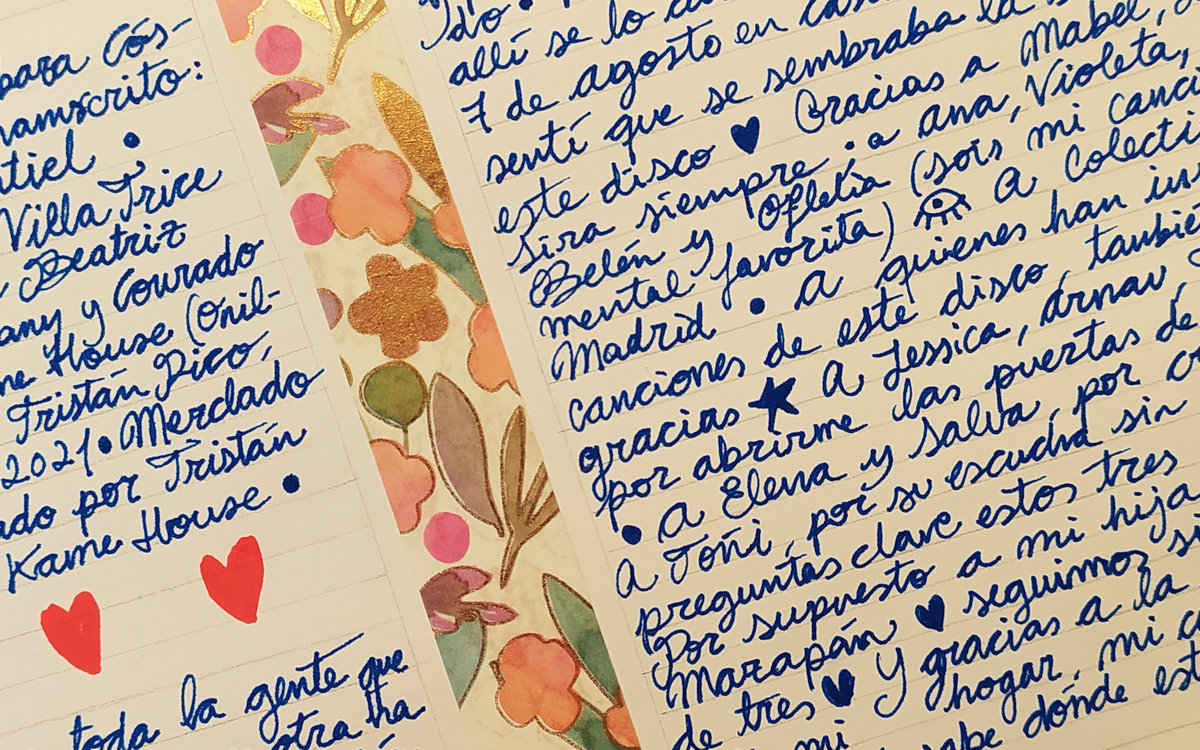 para Cós-
manuscrito:
tiel •
Villa Trice
Beatriz
y Conrado
House (Onil-
Tristán Pico,
2021 • Merclado
ado por Tristán
Kame House •
toda la gente que
otra ha
allí se lo
7 de agosto en
sentí que se sembraba la
este disco ♥ Gracias a Mabel,
sira siempre • a Ana, Violeta,
Belén y Ofelia (sois mi
mental favorita) A Colecti
Madrid • A quienes han
canciones de este disco, tambié
gracias ★ A Jessica, Arnav
por abrirme las puertas de
• A Elena y Salva, por
A Toñi, por su escucha sin
preguntas clave estos tres
Por supuesto a mi hija
Marapán ♥ seguimos
de tres ♥ Y gracias a la
mi hogar, mi
sabe dónde est